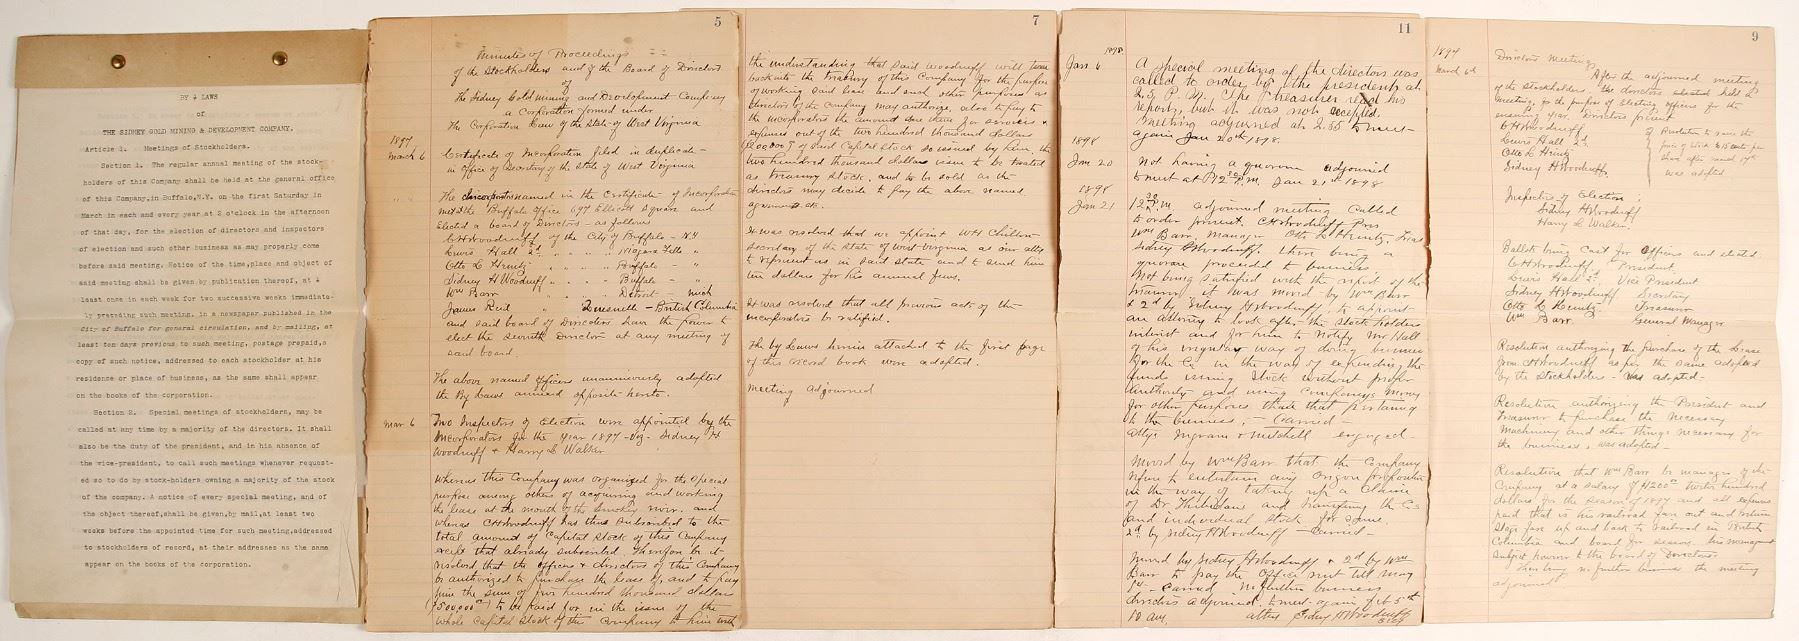 BY LAWS
of
THE SIDNEY GOLD MINING & DEVELOPMENT COMPANY.
Article 1. Meetings of Stockholders.
Section 1. The regular annual meeting of the stock-
holders of this Company shall be held at the general office
of this Company, in Buffalo, N.Y. on the first Saturday in
March in each and every year at 2 o'clock in the afternoon
of that day, for the election of directors and inspectors
of election and such other business as may properly come
before said meeting. Notice of the time, place and object of
said meeting shall be given by publication thereof, at
least once in each week for two successive weeks immediate-
ly preceding such meeting, in a newspaper published in the
City of Buffalo for general circulation, and by mailing, at
least ten days previous to such meeting, postage prepaid, a
copy of such notice, addressed to each stockholder at his
residence or place of business, as the same shall appear
on the books of the corporation.
Section 2. Special meetings of stockholders, may be
called at any time by a majority of the directors. It shall
also be the duty of the president, and in his absence of
the vice-president, to call such meetings whenever request-
ed so to do by stock-holders owning a majority of the stock
of the company. A notice of every special meeting, and of
the object thereof, shall be given, by mail, at least two
weeks before the appointed time for such meeting, addressed
to stockholders of record, at their addresses as the same
appear on the books of the corporation.
5
Minutes of Proceedings
of the Stockholders and of the Board of Directors
of
The Sidney Gold Mining and Development Company
a Corporation formed under
The Corporation Law of the State of West Virginia
1897
March 6 Certificate of Incorporation filed in duplicate -
in Office of Secretary of the State of West Virginia
" " The Incorporators named in the Certificate of Incorporation
met at the Buffalo Office 697 Ellicott Square and
Elected a board of Directors as follows
C H Woodruff of the City of Buffalo - N.Y
Lewis Hall 2d " " " " Niagara Falls "
Otto L Hentz " " " " Buffalo - "
Sidney H Woodruff " " " " Buffalo - "
Wm Barr " " " " Detroit - Mich
James Reid " Quesnelle - British Columbia
and said board of Directors have the power to
elect the seventh Director at any meeting of
said board.
The above named Officers unanimously adopted
the By Laws annexed opposite hereto.
Mar 6 Two Inspectors of Election were appointed by the
Incorporators for the year 1897 - Viz - Sidney H
Woodruff & Harry L Walker
Whereas this Company was organized for the Special
purpose among others of acquiring and working
the lease at the mouth of the Smokey river. and
whereas C H Woodruff has thus subscribed to the
total amount of Capital Stock of this Company
except that already subscribed. Therefore be it
resolved that the Officers & directors of this Company
be authorized to purchase the lease of, and to pay
him the sum of five hundred thousand dollars
($500,000) to be paid for in the issue of the
whole Capital Stock of the Company to him with
7
the understanding that said Woodruff will turn
back into the treasury of this Company for the purpose
of working said lease and such other purposes as
directors of the Company may authorize, also to pay to
the incorporators the amount due them for services &
expenses out of the two hundred thousand dollars
of said Capital Stock so issued by him, the
two hundred thousand dollars issue to be treated
as treasury stock, and to be sold as the
directors may decide to pay the above named
It was resolved that we appoint W H Chilton
secretary of the State of West Virginia as our atty
to represent us in said State and to send him
ten dollars for his annual fees.
It was resolved that all previous acts of the
incorporators be ratified.
The by Laws herein attached to the first page
of this record book were adopted.
Meeting adjourned
11
1898
Jan. 6 A special meeting of the directors was
called to order by the president at
2.30 P. M. The treasurer read his
report, but it was not accepted.
Meeting adjourned at 2.55 to meet
again Jan 20th 1898.
1898
Jan 20 Not having a quorum adjourned
to meet at 12 30 P.M. Jan 21st 1898
1898
Jan 21 12 30 P.m. adjourned meeting called
to order present. C H Woodruff Pres
Wm Barr, Manager Otto L Hentz, Treas
Sidney H Woodruff. there being a
quorum proceeded to business
Not being satisfied with the report of the
treasurer it was moved by Wm Barr
& 2d by Sidney H Woodruff to appoint
an attorney to look after the stockholders
interest and for him to notify Mr Hall
of his irregular way of doing business
for the Co in the way of expending the
funds issuing Stock without proper
Authority and using Companys money
for other purposes than that pertaining
to the business, Carried -
Attys Ingram & Mitchell engaged -
Moved by Wm Barr that the Company
refuse to entertain any proposition
in the way of taking up a Claim
of Dr and transfering the Co's
and individual Stock for same.
2d by Sidney H Woodruff - Carried -
Moved by Sidney H Woodruff & 2d by Wm
Barr to pay the Office rent till May
1st - Carried - No further business
directors adjourned to meet again Feb 5th
10 am. attest Sidney H Woodruff
Secy
9
1897
March 6th Directors Meeting
After the adjourned meeting
of the stockholders. The directors elected held a
Meeting, for the purpose of electing officers for the
ensuing year. Directors present
C H Woodruff
Lewis Hall 2d
Otto L Hentz
Sidney H Woodruff.
Resolution to raise the
price of stock to 15 cents per
share after March 17th
was adopted
Inspectors of Election;
Sidney H Woodruff
Harry L. Walker.
Ballots being Cast for Officers and elected
C H Woodruff President,
Lewis Hall 2d Vice President
Sidney H Woodruff Secretary
Otto L. Hentz. Treasurer
Wm Barr. General Manager
Resolution authorizing the purchase of the Lease
from C H Woodruff as per the same adopted
by the stockholders - was adopted -
Resolution authorizing the President and
Treasurer to purchase the necessary
Machinery and other things necessary for
the business, was adopted -
Resolution that Wm Barr be manager of the
Company at a salary of $1200 twelve hundred
dollars for the season of 1897 and all expenses
paid that is his railroad fare out and return
Stage fare up and back to railroad in British
Columbia and board for season. his management
subject however to the board of Directors.
There being no further business the meeting
adjourned